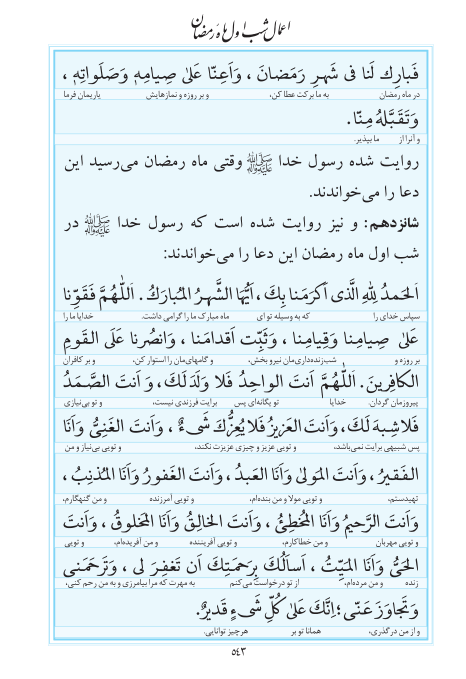 اعمال شب اول ماه رمضان
فَبارِك لَنا فى شَهرِ رَمَضانَ ، وَاَعِنّا عَلىٰ صِيامِهٖ وَصَلَواتِهٖ ،
در ماه رمضان به ما برکت عطا کن، و بر روزه و نمازهایش یاریمان فرما
وَتَقَبَّلهُ مِنّا .
و آنرا از ما بپذیر.
روایت شده رسول خدا ﷺ وقتی ماه رمضان می‌رسید این
دعا را می‌خواندند.
شانزدهم: و نیز روایت شده است که رسول خدا ﷺ در
شب اول ماه رمضان این دعا را می‌خواندند:
اَلحَمدُ لِلّٰهِ الَّذى اَكرَمَنا بِكَ ، اَيُّهَا الشَّهرُ المُبارَكُ . اَللّٰهُمَّ فَقَوِّنا
سپاس خدای را که به وسیله تو ای ماه مبارک ما را گرامی داشت. خدایا ما را
عَلىٰ صِيامِنا وَقِيامِنا ، وَثَبِّت اَقدامَنا ، وَانصُرنا عَلَى القَومِ
بر روزه و شب‌زنده‌داری‌مان نیرو بخش، و گامهای‌مان را استوار کن، و بر کافران
الكافِرينَ . اَللّٰهُمَّ اَنتَ الواحِدُ فَلا وَلَدَ لَكَ ، وَ اَنتَ الصَّمَدُ
پیروزمان گردان. خدایا تو یگانه‌ای پس برایت فرزندی نیست، و تو بی‌نیازی
فَلاشِبهَ لَكَ ، وَاَنتَ العَزيزُ فَلا يُعِزُّكَ شَىءٌ ، وَاَنتَ الغَنِىُّ وَاَنَا
پس شبیهی برایت نمی‌باشد، و تویی عزیز و چیزی عزیزت نکند، و تویی بی‌نیاز و من
الفَقيرُ ، وَاَنتَ المَولىٰ وَاَنَا العَبدُ ، وَاَنتَ الغَفورُ وَاَنَا المُذنِبُ ،
تهیدستم، و تویی مولا و من بنده‌ام، و تویی آمرزنده و من گنهکارم،
وَاَنتَ الرَّحيمُ وَاَنَا المُخطِئُ ، وَاَنتَ الخالِقُ وَاَنَا المَخلوقُ ، وَاَنتَ
و تویی مهربان و من خطاکارم، و تویی آفریننده و من آفریده‌ام، و تویی
الحَىُّ وَاَنَا المَيِّتُ ، اَسأَلُكَ بِرَحمَتِكَ اَن تَغفِرَ لى ، وَتَرحَمَنى
زنده و من مرده‌ام، از تو درخواست می‌کنم به مهرت که مرا بیامرزی و به من رحم کنی،
وَتَجاوَزَ عَنّى ؛ اِنَّكَ عَلىٰ كُلِّ شَىءٍ قَديرٌ.
و از من درگذری، همانا تو بر هرچیز توانایی.
٥٤٣